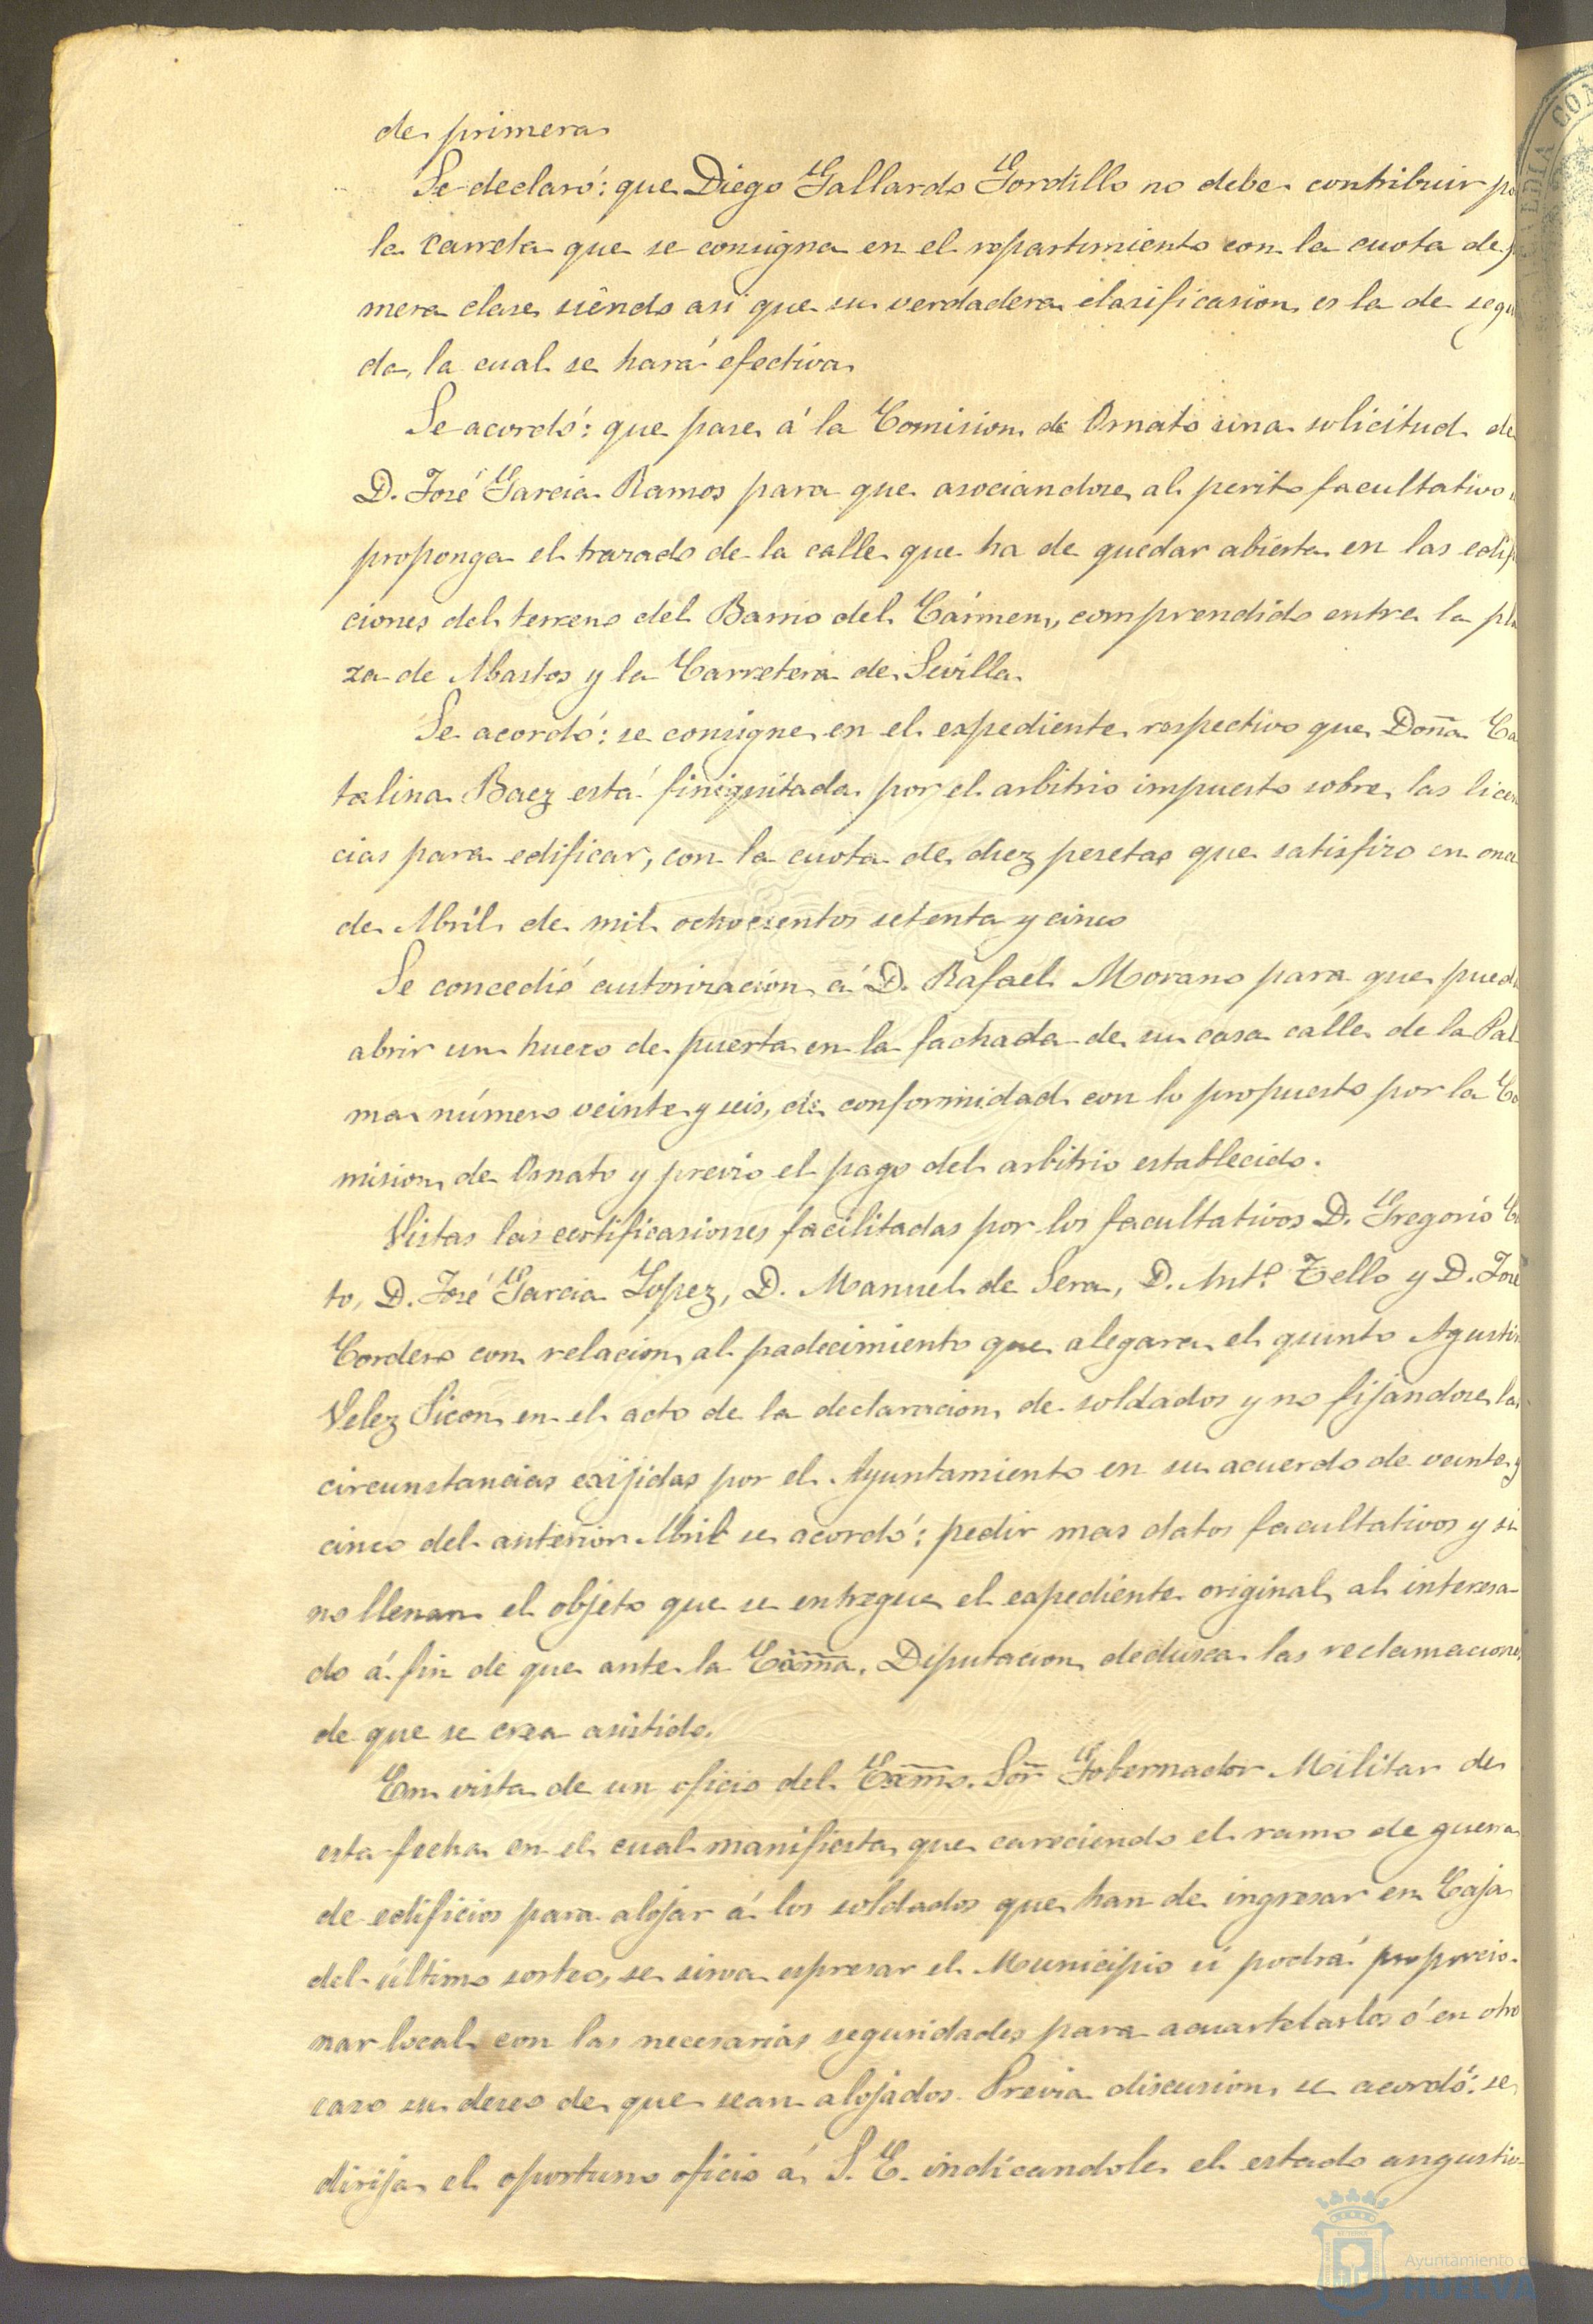 de primera
Se declaró: que Diego Gallardo Gordillo no debe contribuir po
la carreta que se consigna en el repartimiento con la cuota de p
mera clase siendo asi que su verdadera clasificasion es la de segu
da, la cual se hará efectiva
Se acordó: que pase á la Comision de Ornato una solicitud de
D. José Garcia Ramos para que asociandose al perito facultativo
proponga el trazado de la calle que ha de quedar abierta en las edifi
ciones del terreno del Barrio del Cármen, comprendido entre la pla
za de Abastos y la Carretera de Sevilla.
Se acordó: se consigne en el expediente respectivo que Doña Ca
talina Baez está finiquitada por el arbitrio impuesto sobre las licen
cias para edificar, con la cuota de diez pesetas que satisfizo en once
de Abril de mil ochocientos setenta y cinco
Se concedió autorización á D. Rafael Morano para que pueda
abrir un hueco de puerta en la fachada de su casa calle de la Pal
ma número veinte y seis, de conformidad con lo propuesto por la Co
mision de Ornato y previo el pago del arbitrio establecido.
Vistas las certificasiones facilitadas por los facultativos D. Gregorio
to, D. José Garcia Lopez, D. Manuel de Sera, D. Antº. Tello y D. José
Cordero con relacion al padecimiento que alegara el quinto Agustin
Velez Sicon en el acto de la declaracion de soldados y no fijandose las
circunstancias exijidas por el Ayuntamiento en su acuerdo de veinte y
cinco del anterior Abril se acordó: pedir mas datos facultativos y si
no llenan el objeto que se entregue el expediente original al interesa-
do á fin de que ante la Exm̃a. Diputacion deduzca las reclamaciones
de que se crea asistido.
En vista de un oficio del Exm̃o. Sor̃ Gobernador Militar de
esta fecha en el cual manifiesta que careciendo el ramo de guerra
de edificios para alojar á los soldados que han de ingresar en Caja
del último sorteo, se sirva espresar el Municipio si podrá proporcio-
nar local con las necesarias seguridades para acuartelarlos ó en otro
caso su deseo de que sean alojados. Previa discusion se acordó: se
dirija el oportuno oficio á S. E. indicandole el estado angustio-
Ayuntamiento d
HUELVA